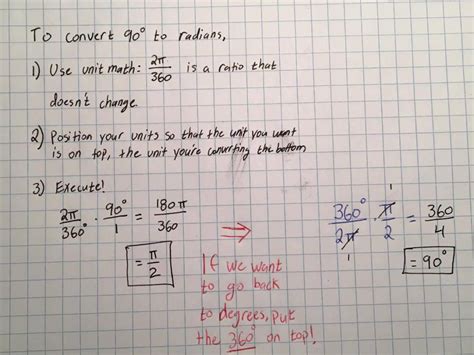 To convert 90° to radians,
1) Use unit math: 2π/360 is a ratio that
doesn't change
2) Position your units so that the unit you want
is on top, the unit you're converting the bottom
3) Execute!
2π/360° · 90°/1 = 180π/360
= π/2
⇒
If we want
to go back
to degrees, put
the 360° on top!
360°/2π · π/2 = 360/4
1
1
= 90°